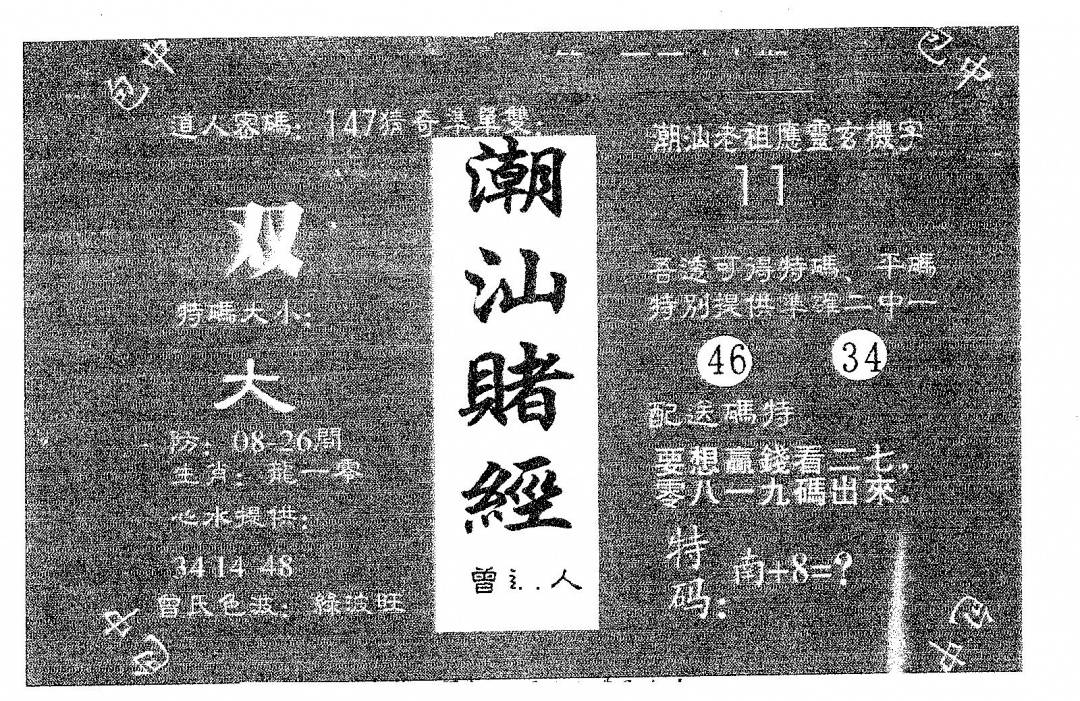 包中
包中
道人密碼：147猜奇準單雙：
双
特碼大小：
大
防：08-26開
生肖：龍一零
心水提供：
34 14 48
曾氏色波：綠波旺
潮汕賭經
曾 人
潮汕老祖應靈玄機字
11
吾透可得特碼、平碼
特別提供準確二中一
46 34
配送碼特
要想贏錢看二七，
零八一九碼出來．
特码：南+8=?
包中
包中